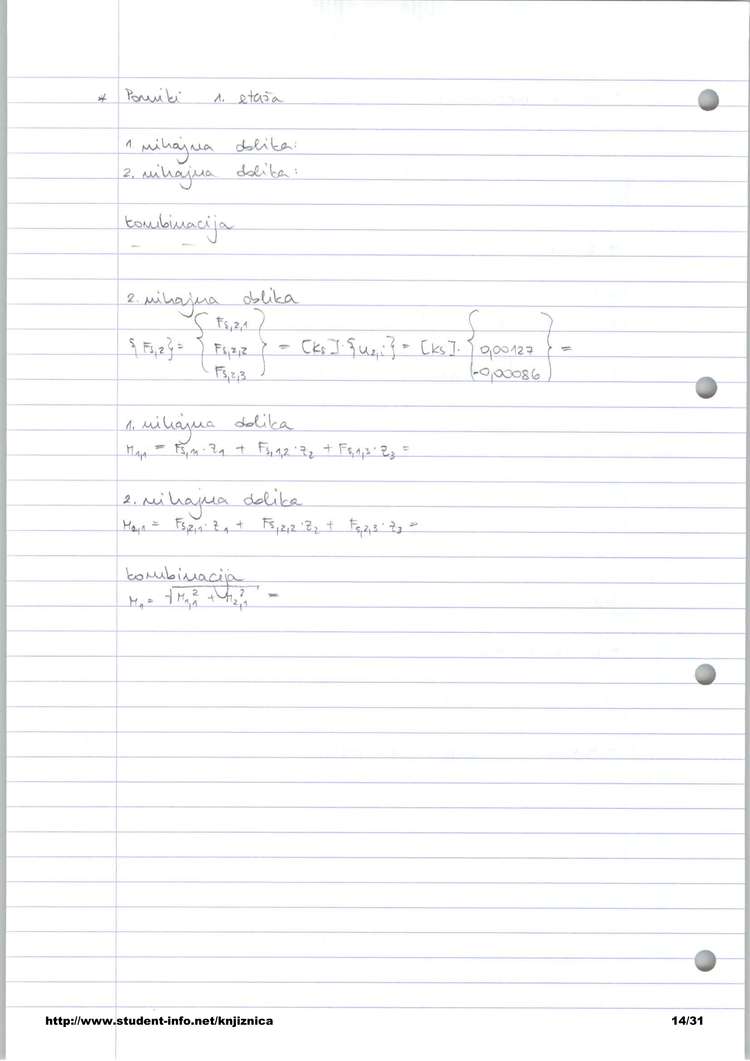 * Pomiki 1. etaža
1 nihajna oblika:
2. nihajna oblika:
kombinacija
2. nihajna oblika
{Fs,2} = {Fs,2,1 Fs,2,2 Fs,2,3} = [Ks]·{u2,i} = [Ks]·{0,00127 -0,00086} =
1. nihajna oblika
M1,1 = Fs,11·z1 + Fs,1,2·z2 + Fs,1,3·z3 =
2. nihajna oblika
M2,1 = Fs,2,1·z1 + Fs,2,2·z2 + Fs,2,3·z3 =
kombinacija
M1 = √(M1,1² + M2,1²) =
http://www.student-info.net/knjiznica 14/31